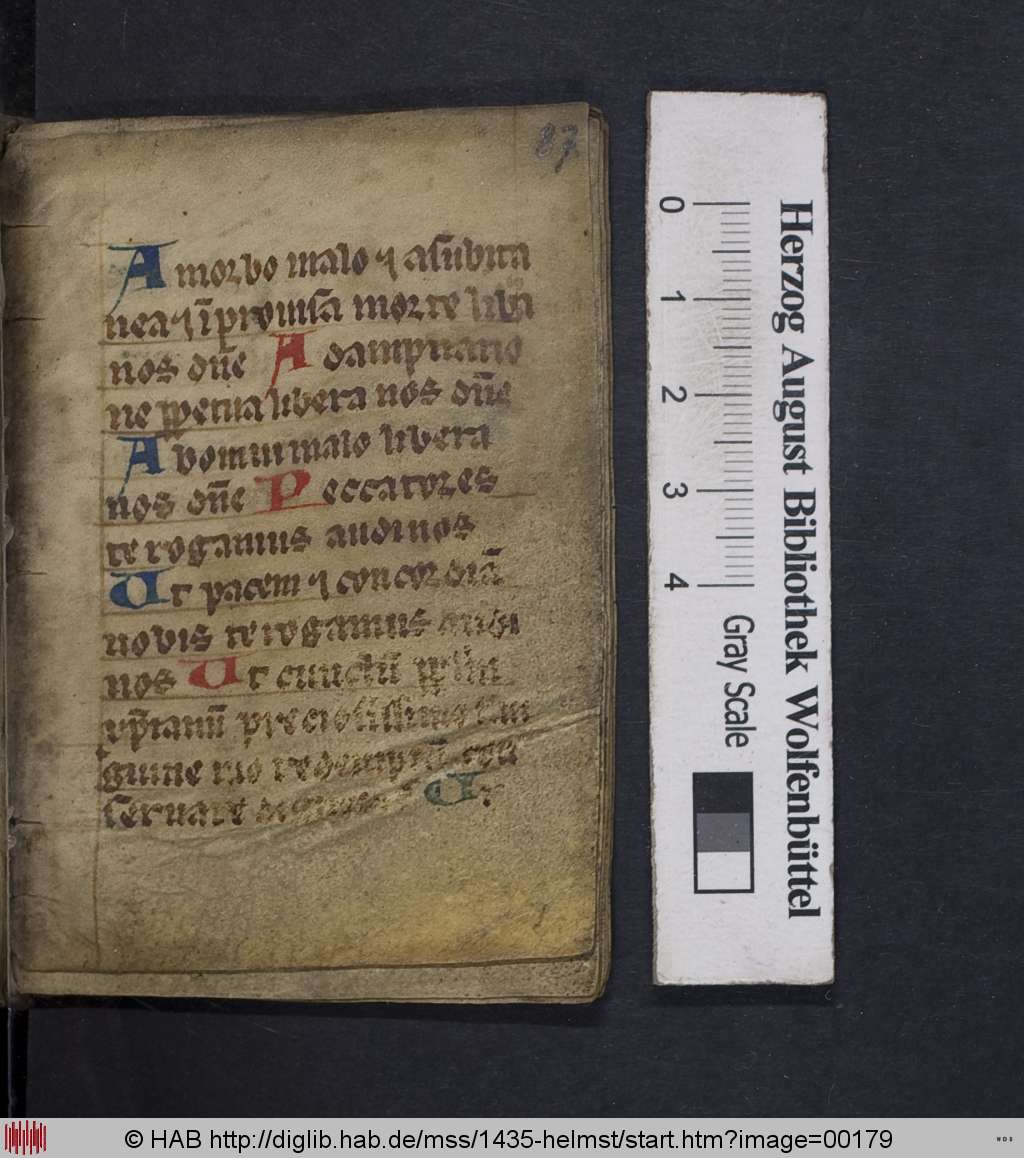 87
A morbo malo ⁊ a subita
nea ⁊ īprouisa morte lib̄a
nos dn̄e A dampnatio
ne ꝑpetua libera nos dn̄e
Ab omni malo libera
nos dn̄e Peccatores
te rogamus audi nos
Ut pacem ⁊ concordiā
nobis te rogamus audi
nos Ut cunctū
xp̄ianū preciosissimo san
guine tuo redemptū con
seruare Ut
Herzog August Bibliothek Wolfenbüttel
0 1 2 3 4
Gray Scale
© HAB http://diglib.hab.de/mss/1435-helmst/start.htm?image=00179